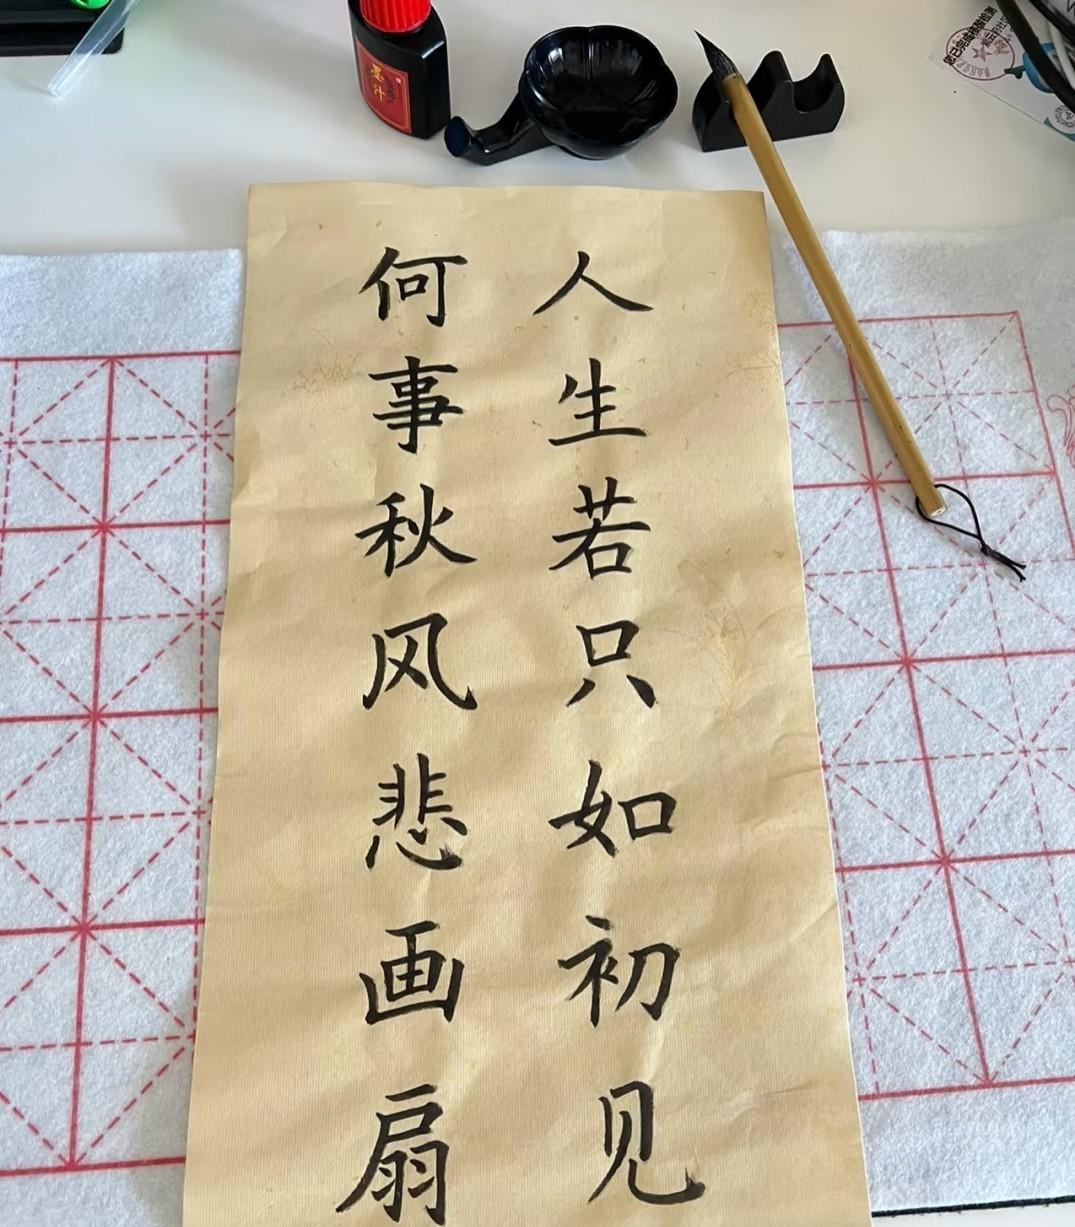 人生若只如初见
何事秋风悲画扇
墨汁